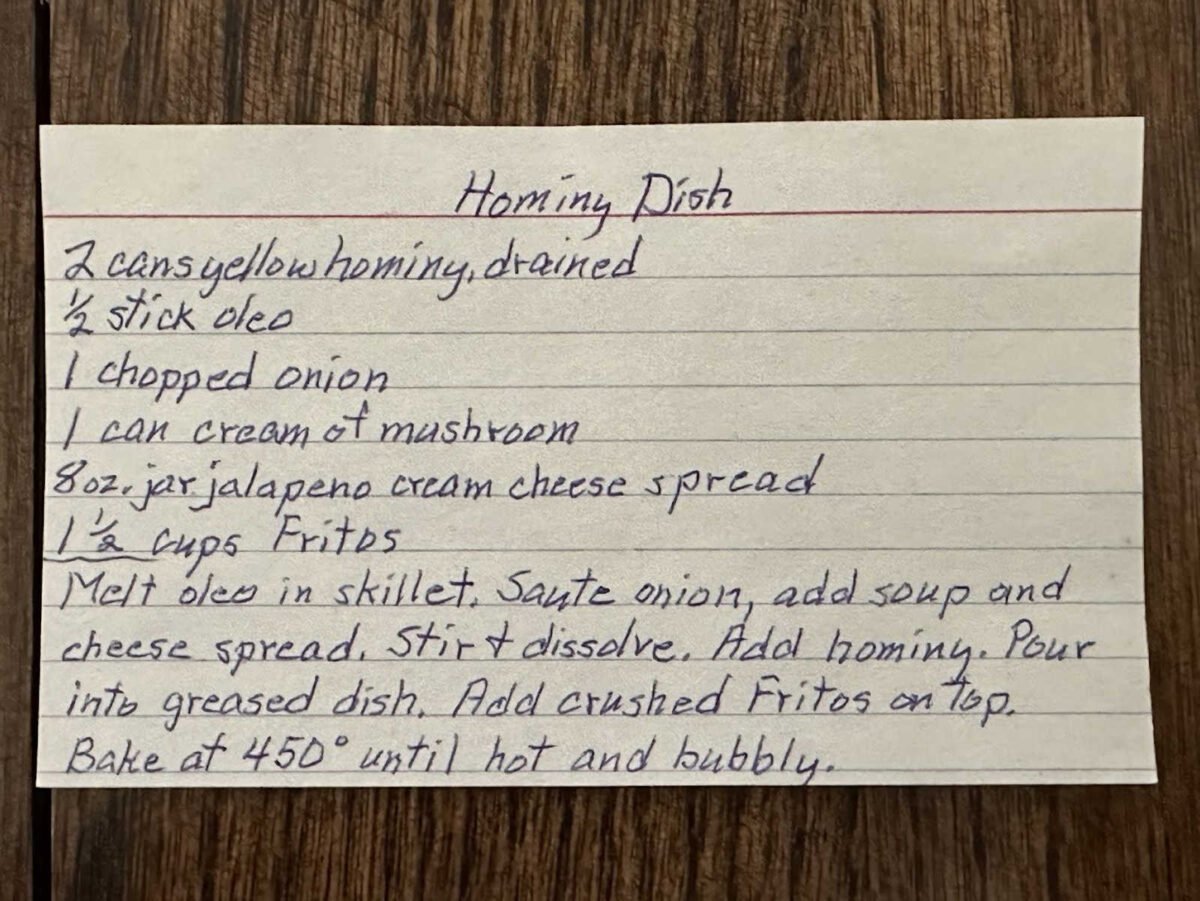 Hominy Dish
2 cans yellow hominy, drained
½ stick oleo
1 chopped onion
1 can cream of mushroom
8 oz. jar jalapeno cream cheese spread
1 ½ cups Fritos
Melt oleo in skillet. Saute onion, add soup and
cheese spread. Stir + dissolve. Add hominy. Pour
into greased dish. Add crushed Fritos on top.
Bake at 450° until hot and bubbly.